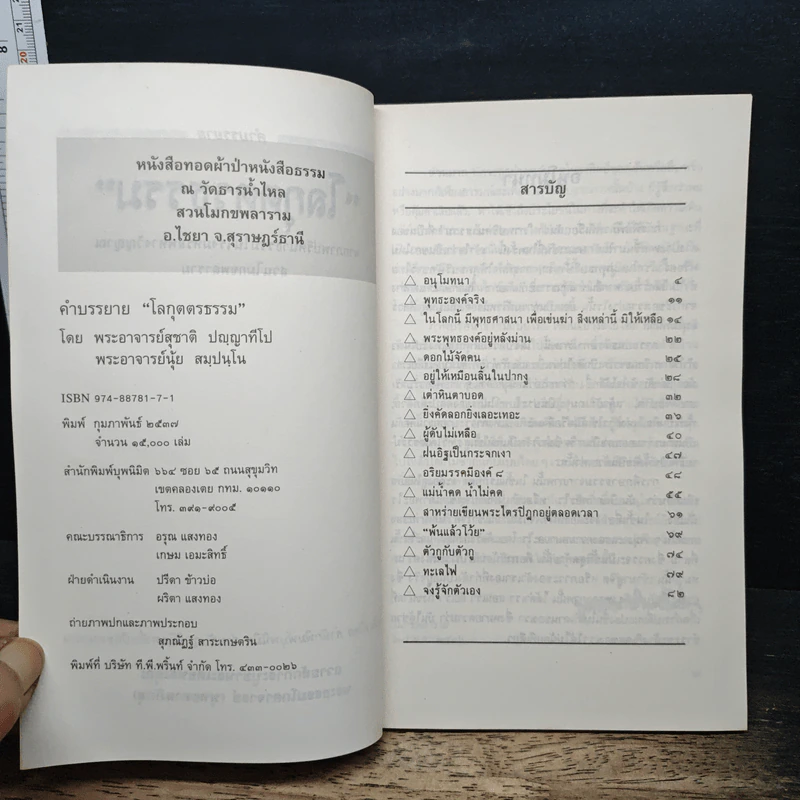 หนังสือทอดผ้าป่าหนังสือธรรม
ณ วัดธารน้ำไหล
สวนโมกขพลาราม
อ.ไชยา จ.สุราษฎร์ธานี
คำบรรยาย “โลกุตตรธรรม”
โดย พระอาจารย์สุชาติ ปญฺญาทีโป
พระอาจารย์นุ้ย สมฺปนฺโน
ISBN 974-88781-7-1
พิมพ์ กุมภาพันธ์ ๒๕๓๗
จำนวน ๑๕,๐๐๐ เล่ม
สำนักพิมพ์บุพนิมิต ๖๖๔ ซอย ๖๕ ถนนสุขุมวิท
เขตคลองเตย กทม. ๑๐๑๑๐
โทร. ๓๙๑-๙๐๐๕
คณะบรรณาธิการ อรุณ แสงทอง
เกษม เอมะสิทธิ์
ฝ่ายดำเนินงาน ปรีดา ข้าวบ่อ
ผริตา แสงทอง
ถ่ายภาพปกและภาพประกอบ
สุภณัฏฐ์ สาระเกษตริน
พิมพ์ที่ บริษัท ที.พี.พริ้นท์ จำกัด โทร. ๔๓๓-๐๐๒๖
สารบัญ
△ อนุโมทนา ๔
△ พุทธะองค์จริง ๑๑
△ ในโลกนี้ มีพุทธศาสนา เพื่อเข่นฆ่า สิ่งเหล่านี้ มิให้เหลือ ๑๔
△ พระพุทธองค์อยู่หลังม่าน ๒๒
△ ดอกไม้จัดคน ๒๕
△ อยู่ให้เหมือนลิ้นในปากงู ๒๘
△ เต่าหินตาบอด ๓๒
△ ยิ่งคัดลอกยิ่งเลอะเทอะ ๓๖
△ ผู้ดับไม่เหลือ ๔๐
△ ฝนอิฐเป็นกระจกเงา ๔๗
△ อริยมรรคมีองค์ ๘ ๔๘
△ แม่น้ำคด น้ำไม่คด ๕๕
△ สาหร่ายเขียนพระไตรปิฎกอยู่ตลอดเวลา ๖๑
△ “พ้นแล้วโว้ย” ๖๙
△ ตัวกูกับตัวกู ๗๔
△ ทะเลไฟ ๗๙
△ จงรู้จักตัวเอง ๘๒